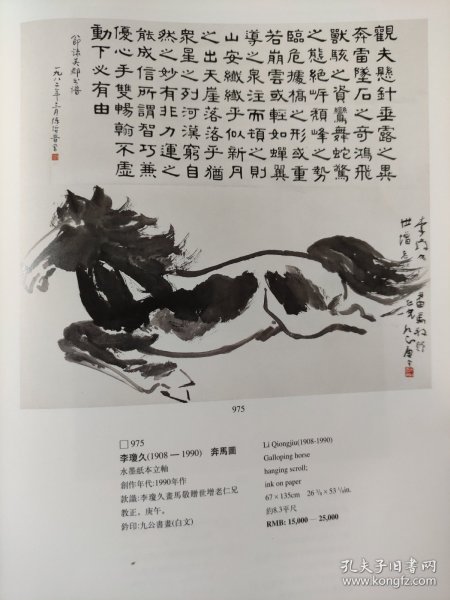 觀夫懸針垂露之異
奔雷墜石之奇鴻飛
獸駭之資鸞舞蛇驚
之態絕岸頹峰之勢
臨危據槁之形或重
若崩雲或輕如蟬翼
導之泉注而頓之則
山安纖纖乎似新月
之出天崖落落乎猶
衆星之列河漢窮自
然之妙有非力運之
能成信所謂智巧兼
優心手雙暢翰不虛
動下必有由
一九八二年三月
975
□975
李瓊久(1908—1990) 奔馬圖
水墨紙本立軸
創作年代:1990年作
款識:李瓊久畫馬敬贈世增老仁兄
教正,庚午。
鈐印:九公書畫(白文)
Li Qiongjiu(1908-1990)
Galloping horse
hanging scroll;
ink on paper
67×135cm 26 ³⁄₈ × 53 ¹⁄₈in.
約8.3平尺
RMB: 15,000 — 25,000
孔夫子旧书网
www.kongfz.com